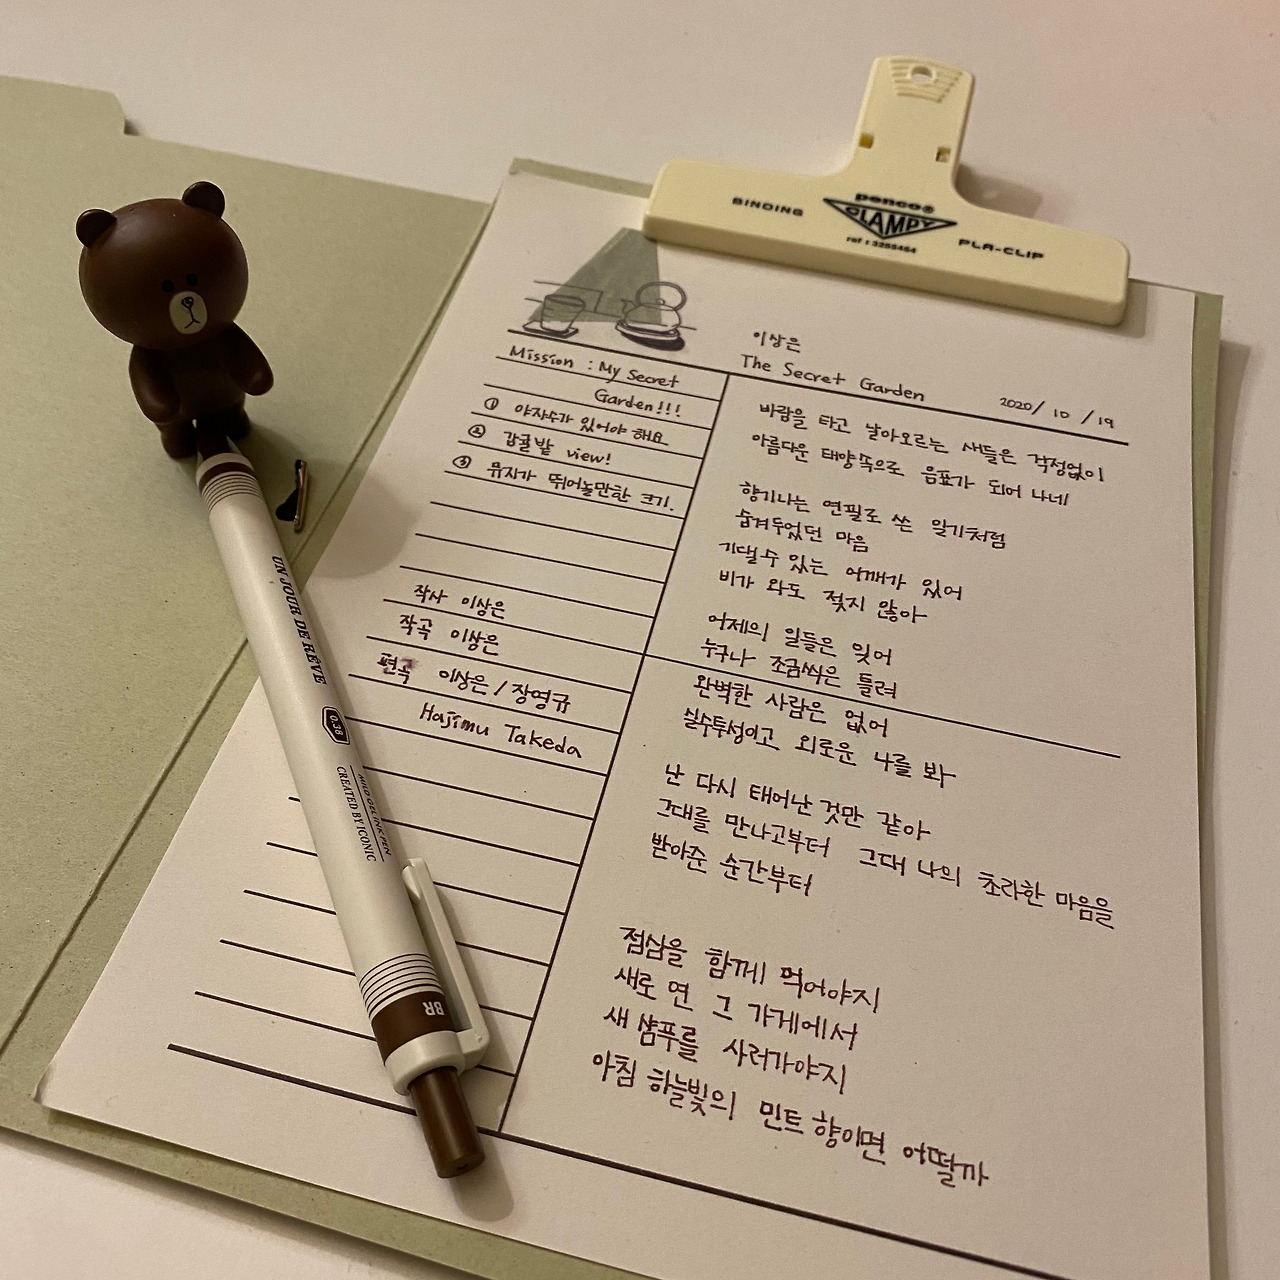 penco®
BINDING CLAMPY PLA-CLIP
ref : 3255464
이상은
The Secret Garden
2020/ 10 /19
Mission : My Secret
Garden!!!
① 야자수가 있어야 해요
② 감귤밭 view!
③ 뮤지가 뛰어놀만한 크기.
작사 이상은
작곡 이상은
편곡 이상은 / 장영규
Hajimu Takeda
바람을 타고 날아오르는 새들은 걱정없이
아름다운 태양속으로 음표가 되어 나네
향기나는 연필로 쓴 일기처럼
숨겨두었던 마음
기댈수 있는 어깨가 있어
비가 와도 젖지 않아
어제의 일들은 잊어
누구나 조금씩은 틀려
완벽한 사람은 없어
실수투성이고 외로운 나를 봐
난 다시 태어난 것만 같아
그대를 만나고부터 그대 나의 초라한 마음을
받아준 순간부터
점심을 함께 먹어야지
새로 연 그 가게에서
새 샴푸를 사러가야지
아침 하늘빛의 민트향이면 어떨까
UN JOUR DE RÊVE
0.38
MILD GEL INK PEN
CREATED BY ICONIC
BR